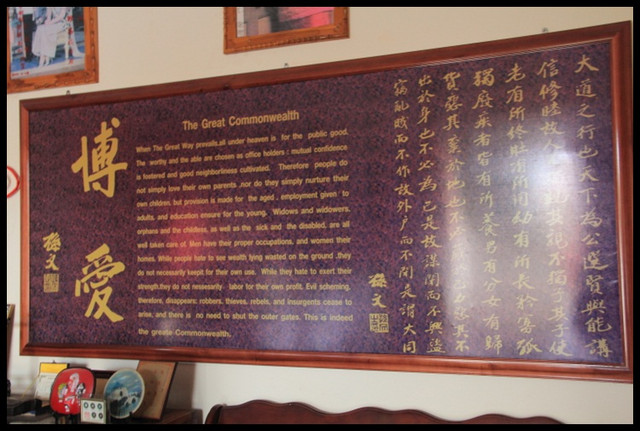 博愛
孫文
The Great Commonwealth
When The Great Way prevails,all under heaven is for the public good.
The worthy and the able are chosen as office holders ; mutual confidence
is fostered and good neighborliness cultivated. Therefore people do
not simply love their own parents ,nor do they simply nurture their
own children, but provision is made for the aged , employment given to
adults, and education ensure for the young. Widows and widowers,
orphans and the childless, as well as the sick and the disabled, are all
well taken care of. Men have their proper occupations, and women their
homes. While people hate to see wealth lying wasted on the ground ,they
do not necessarily keept for their own use. While they hate to exert their
strength,they do not nesessarily labor for their own profit. Evil scheming,
therefore, disappears: robbers, thieves, rebels, and insurgents cease to
arise, and there is no need to shut the outer gates. This is indeed
the greate Commonwealth.
大道之行也天下為公選賢與能講
信修睦故人不獨親其親不獨子其子使
老有所終壯有所用幼有所長矜寡孤
獨廢疾者皆有所養男有分女有歸
貨惡其棄於地也不必 惡其不
出於身也不必為己是故謀閉而不興盜
竊亂賊而不作故外戶而不閉是謂大同
孫文